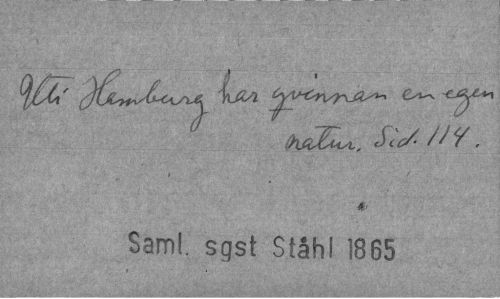 Uti Hamburg har qvinnan en egen
natur. Sid. 114.
Saml. sgst Ståhl 1865